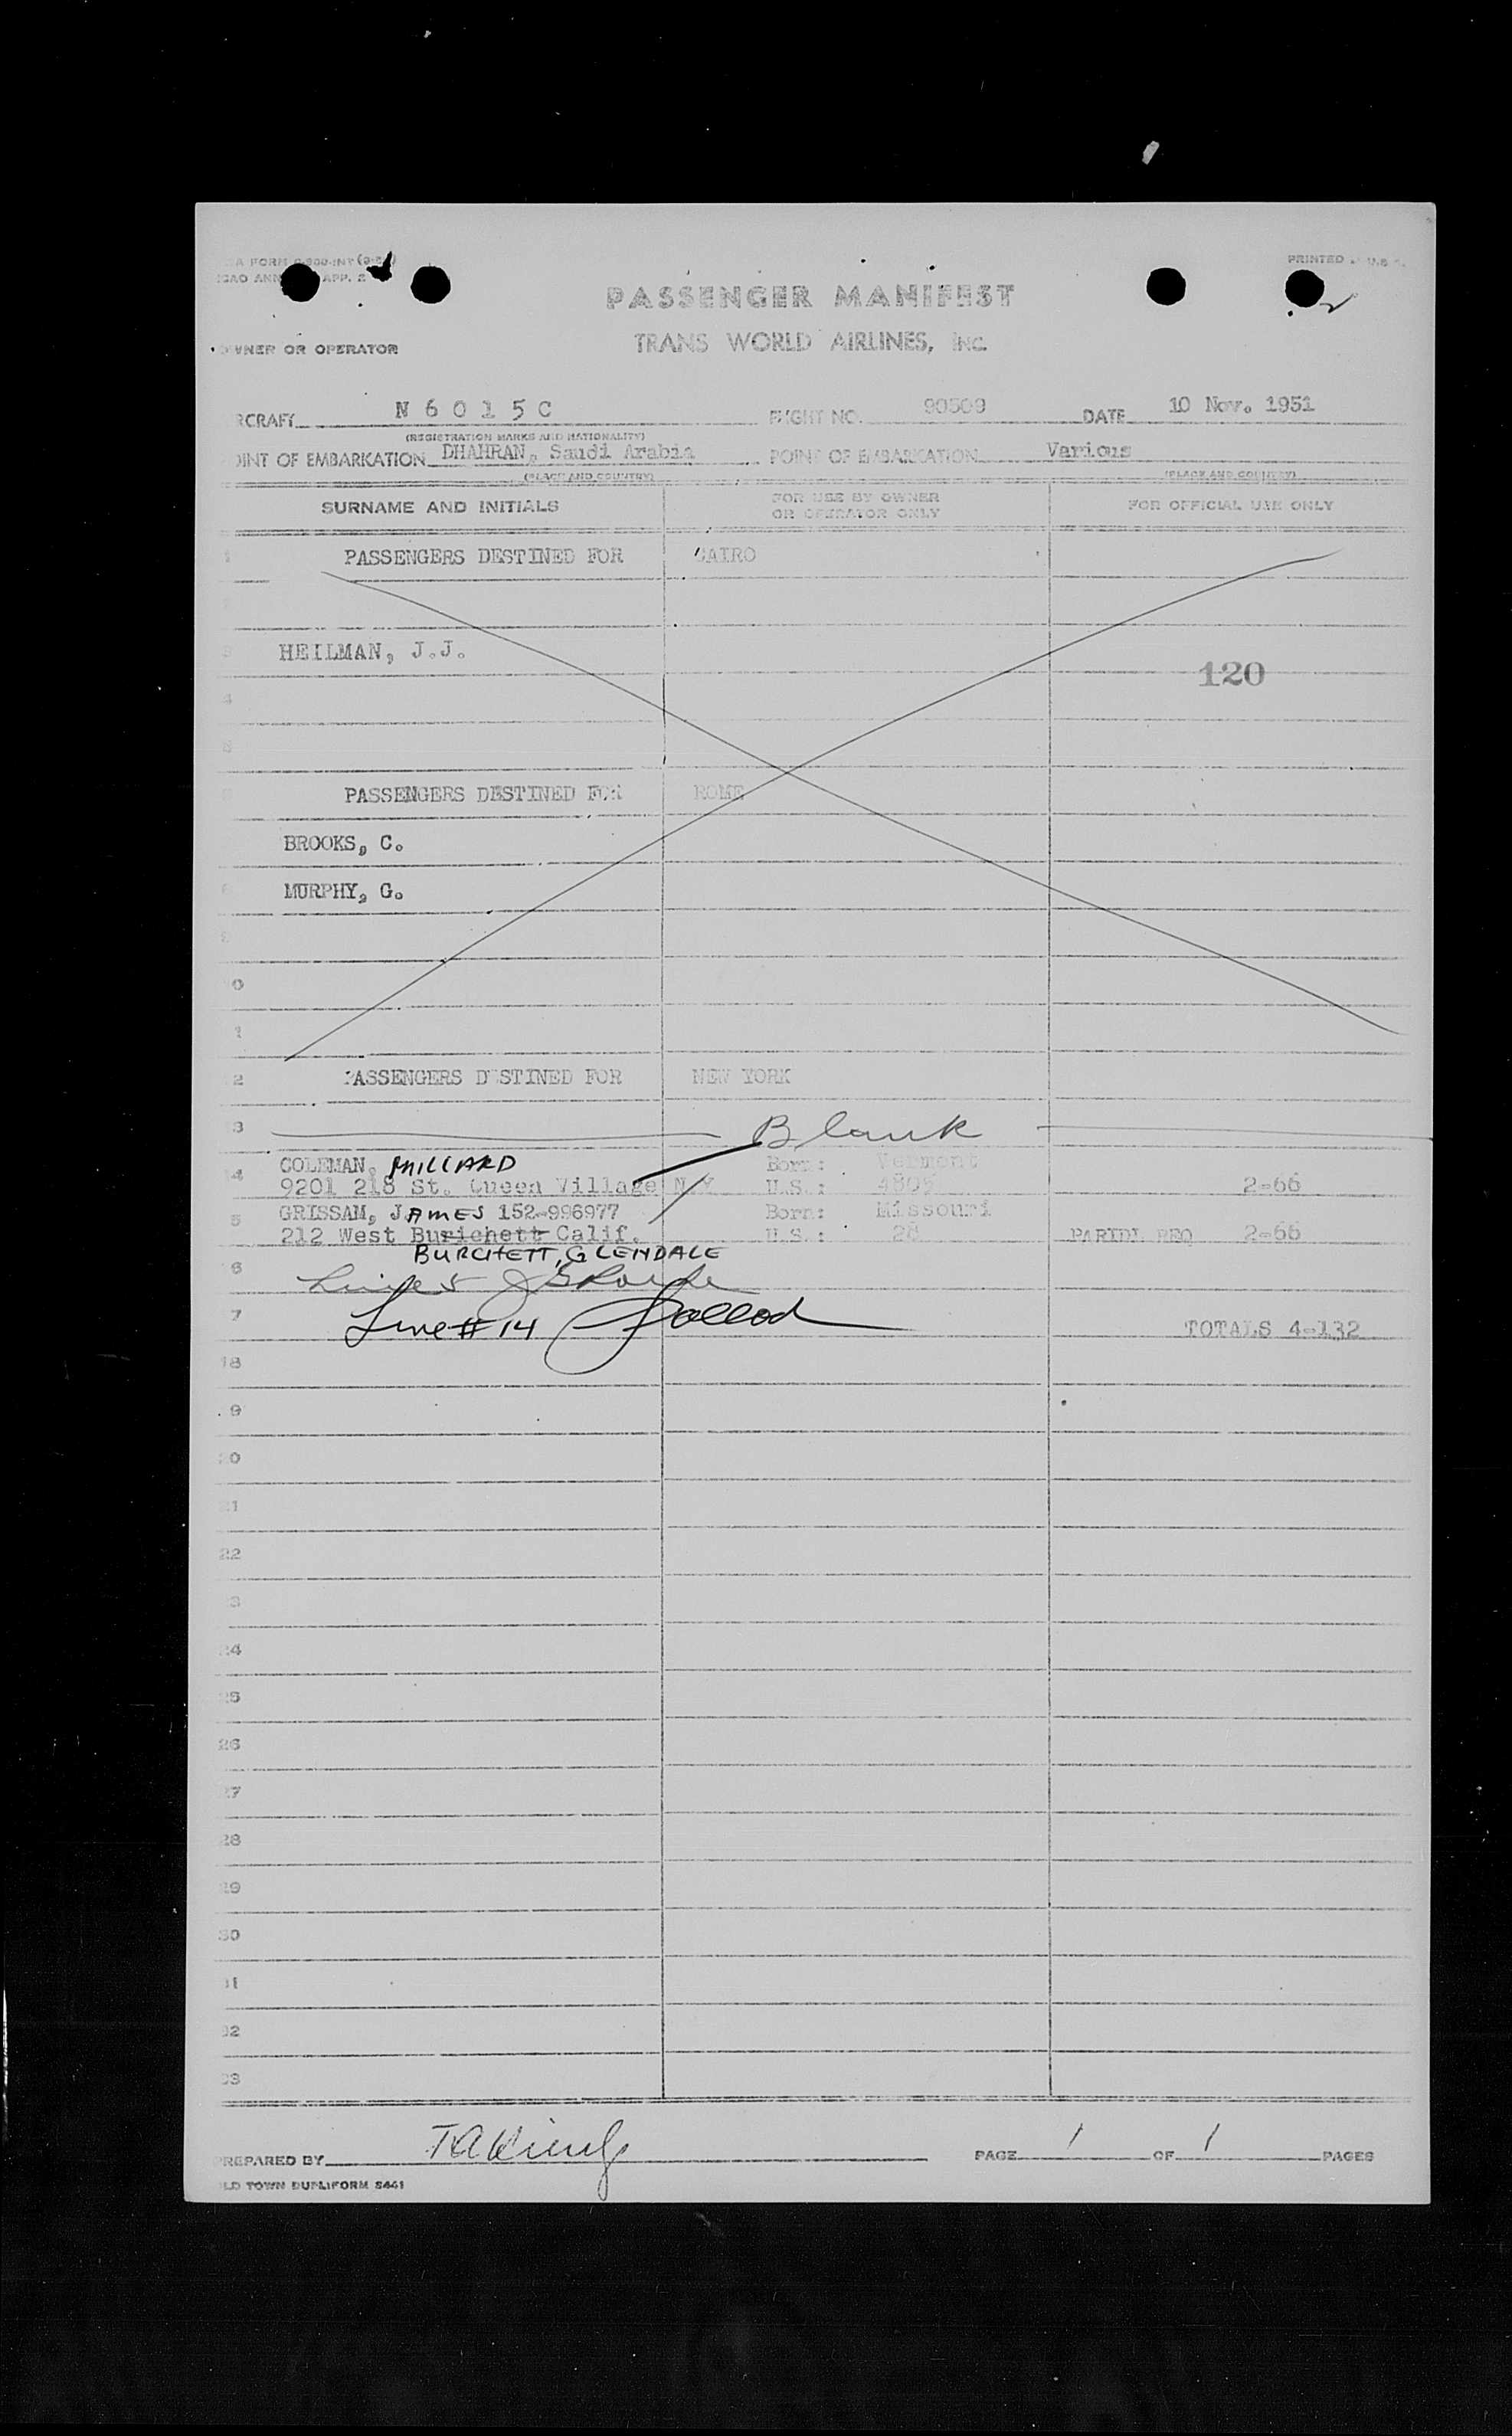 PRINTED
APP. 2
PASSENGER MANIFEST
OWNER OR OPERATOR
TRANS WORLD AIRLINES, INC.
RCRAFT N 6 0 1 5 C FLIGHT NO. 90509 DATE 10 Nov. 1951
(REGISTRATION MARKS AND NATIONALITY)
OINT OF EMBARKATION DHAHRAN, Saudi Arabia POINT OF EMBARKATION Various
(PLACE AND COUNTRY) (PLACE AND COUNTRY)
SURNAME AND INITIALS FOR USE BY OWNER OR OPERATOR ONLY FOR OFFICIAL USE ONLY
1 PASSENGERS DESTINED FOR CAIRO
3 HEILMAN, J.J.
120
4
5
PASSENGERS DESTINED FOR ROME
BROOKS, C.
8 MURPHY, G.
9
0
1
2 PASSENGERS DESTINED FOR NEW YORK
3 Blank
14 COLEMAN, MILLARD Born: Vermont
9201 218 St. Queen Village N Y U.S.: 2-66
5 GRISSAM, JAMES 152-996977 Born: Missouri
212 West Burichett Calif. U.S.: 28 2-66
BURCHETT, GLENDALE
6
7 Line # 14 TOTALS 4-132
18
9
20
21
22
3
24
25
26
27
28
29
30
31
32
33
PREPARED BY PAGE 1 OF 1 PAGES
LD TOWN DUPLIFORM S461